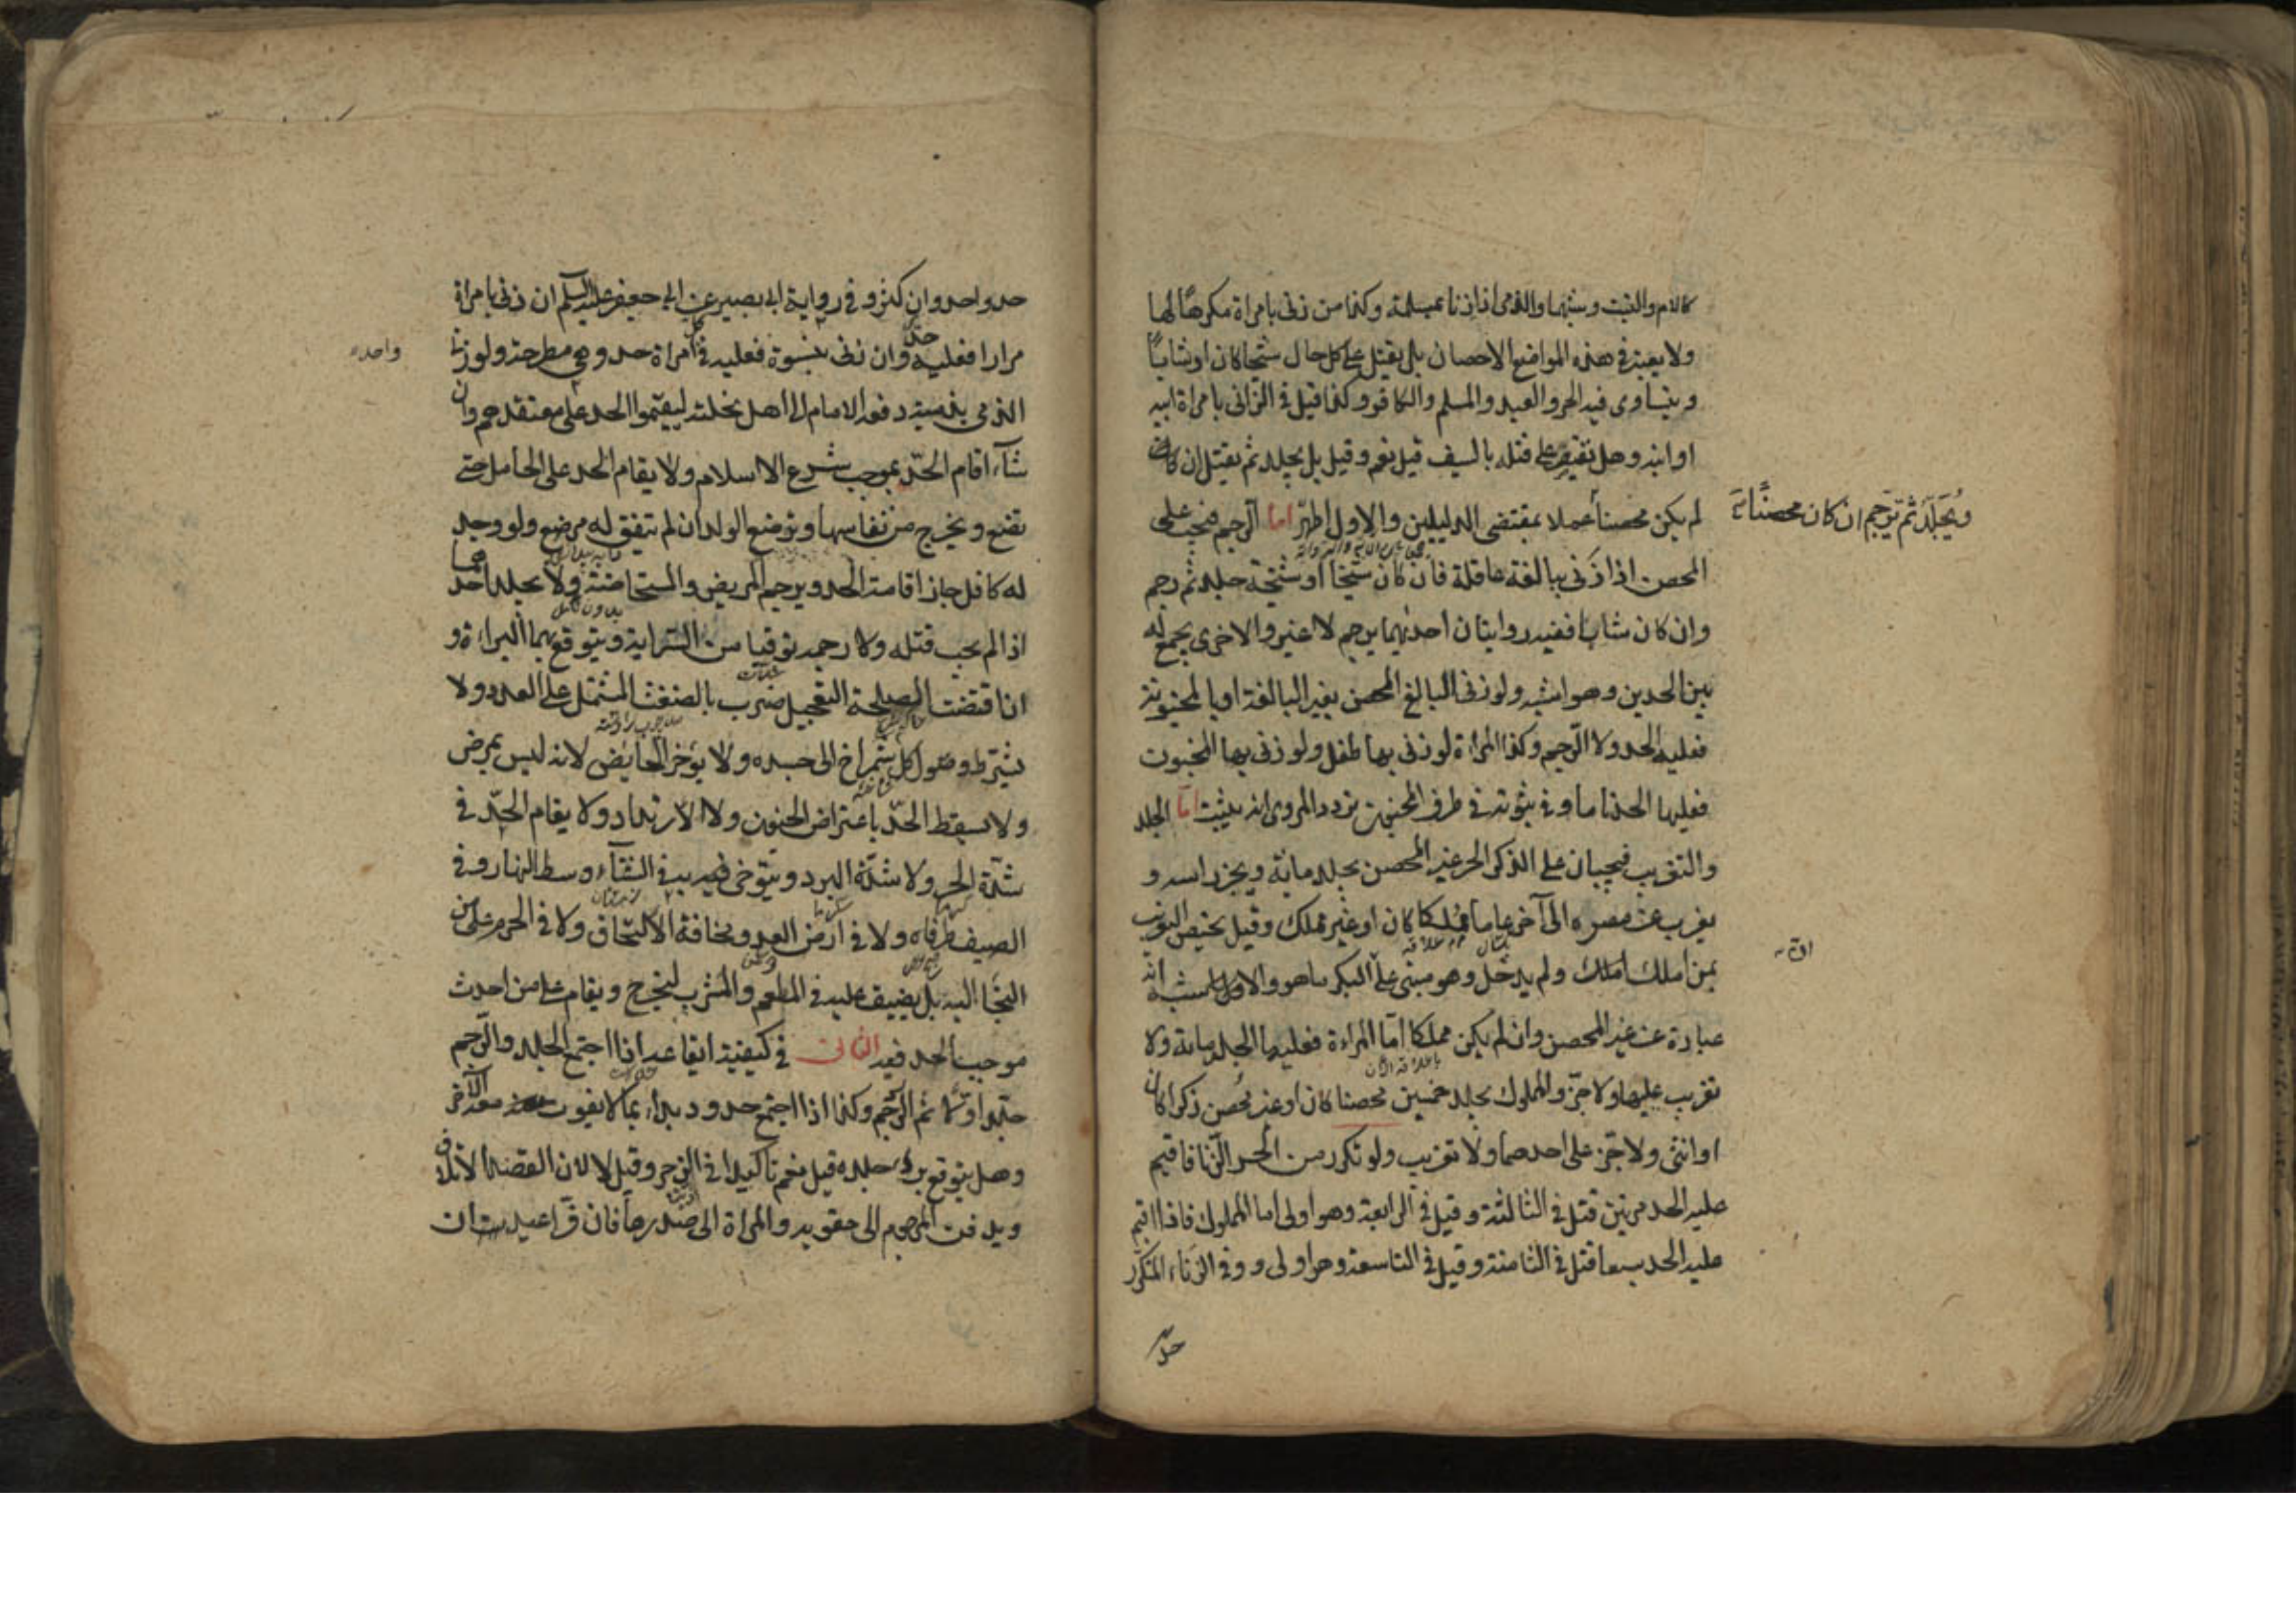 كالام والبنت وشبهها والذمى اذا زنا بمسلمة وكذا من زنى بامراة مكرها لها
ولا يعتبر فى هذه المواضع الاحصان بل يقتل على كل حال شيخا كان او شابا
ويتساوى فيه الحر والعبد والمسلم والكافر وكذا قيل فى الزانى بامراة ابيه
او ابنه وهل يقتصر على قتله بالسيف قيل نعم وقيل بل يجلد ثم يقتل ان كان
لم يكن محصنا عملا بمقتضى الدليلين والاول اظهر اما الرجم فيجب على
ويجلد ثم يرجم ان كان محصنا
المحصن اذا زنى ببالغة عاقلة فان كان شيخا او شيخة جلد ثم رجم
وان كان شابا ففيه روايتان احدايهما يرجم لا غير والاخرى يجمع له
بين الحدين وهو اشبه ولو زنى البالغ المحصن بغير البالغة او بالمجنونة
فعليه الحد ولا الرجم وكذا المراة لو زنى بها طفل ولو زنى بها المجنون
فعليها الحد تاما وفى ثبوته فى طرف المجنون تردد المروى انه يثبت اما الجلد
والتغريب فيجبان على الذكر الحر غير المحصن يجلد مائة ويجز راسه و
يغرب عن مصره الى آخر عاما مملكا كان او غير مملك وقيل يختص التغريب
بمن املك ولم يدخل وهو مبنى على البكر ما هو والاول اشبه انه
عبارة عن غير المحصن وان لم يكن مملكا اما المراة فعليها الجلد مائة ولا
تغريب عليها ولا جز والمملوك يجلد خمسين محصنا كان او غير محصن ذكرا كان
او انثى ولا جز على احدهما ولا تغريب ولو تكرر من الحر الزنا فاقيم
عليه الحد مرتين قتل فى الثالثة وقيل فى الرابعة وهو اولى اما المملوك فاذا اقيم
عليه الحد سبعا قتل فى الثامنة وقيل فى التاسعة وهو اولى و وفى الزناء المتكرر
حد
حد واحد وان كثر و فى رواية ابى بصير عن ابى جعفر عليه السلم ان زنى بامراة
مرارا فعليه حد وان زنى بنسوة فعليه فى كل امراة حد وهى مطرحة ولو زنا
واحده
الذمى بذمية دفعه الامام الى اهل نحلته ليقيموا الحد على معتقدهم وان
شآء اقام الحد بموجب شرع الاسلام ولا يقام الحد على الحامل حتى
تضع و يخرج من نفاسها وترضع الولد ان لم يتفق له مرضع ولو وجد
له كافل جاز اقامة الحد ويرجم المريض والمستحاضة ولا يجلد احدهما
اذا لم يجب قتله ولا رجمه توقيا من السراية ويتوقع بهما البراءة و
ان اقتضت المصلحة التعجيل ضرب بالضغث المشتمل على العدد ولا
يشترط وصول كل شمراخ الى جسده ولا يؤخر الحايض لانه ليس بمرض
ولا يسقط الحد باعتراض الجنون ولا الارتداد ولا يقام الحد فى
شدة الحر ولا شدة البرد و يتوخى فيه به فى الشتآء وسط النهار وفى
الصيف طرفاه ولا فى ارض العدو مخافة الالتحاق ولا فى الحرم على من
التجا اليه بل يضيق عليه فى المطعم والمشرب ليخرج ويقام على من احدث
موجب الحد فيه الثانى فى كيفية ايقاعه اذا اجتمع الجلد والرجم
جلد اولا ثم الرجم وكذا اذا اجتمع حدود بداء بما لا يفوت معه الآخر
وهل يتوقع برء جلده قيل نعم تاكيدا فى الزجر وقيل لا لان القصد الاتلاف
ويدفن المرجوم الى حقويه والمراة الى صدرها فان فر اعيد ان